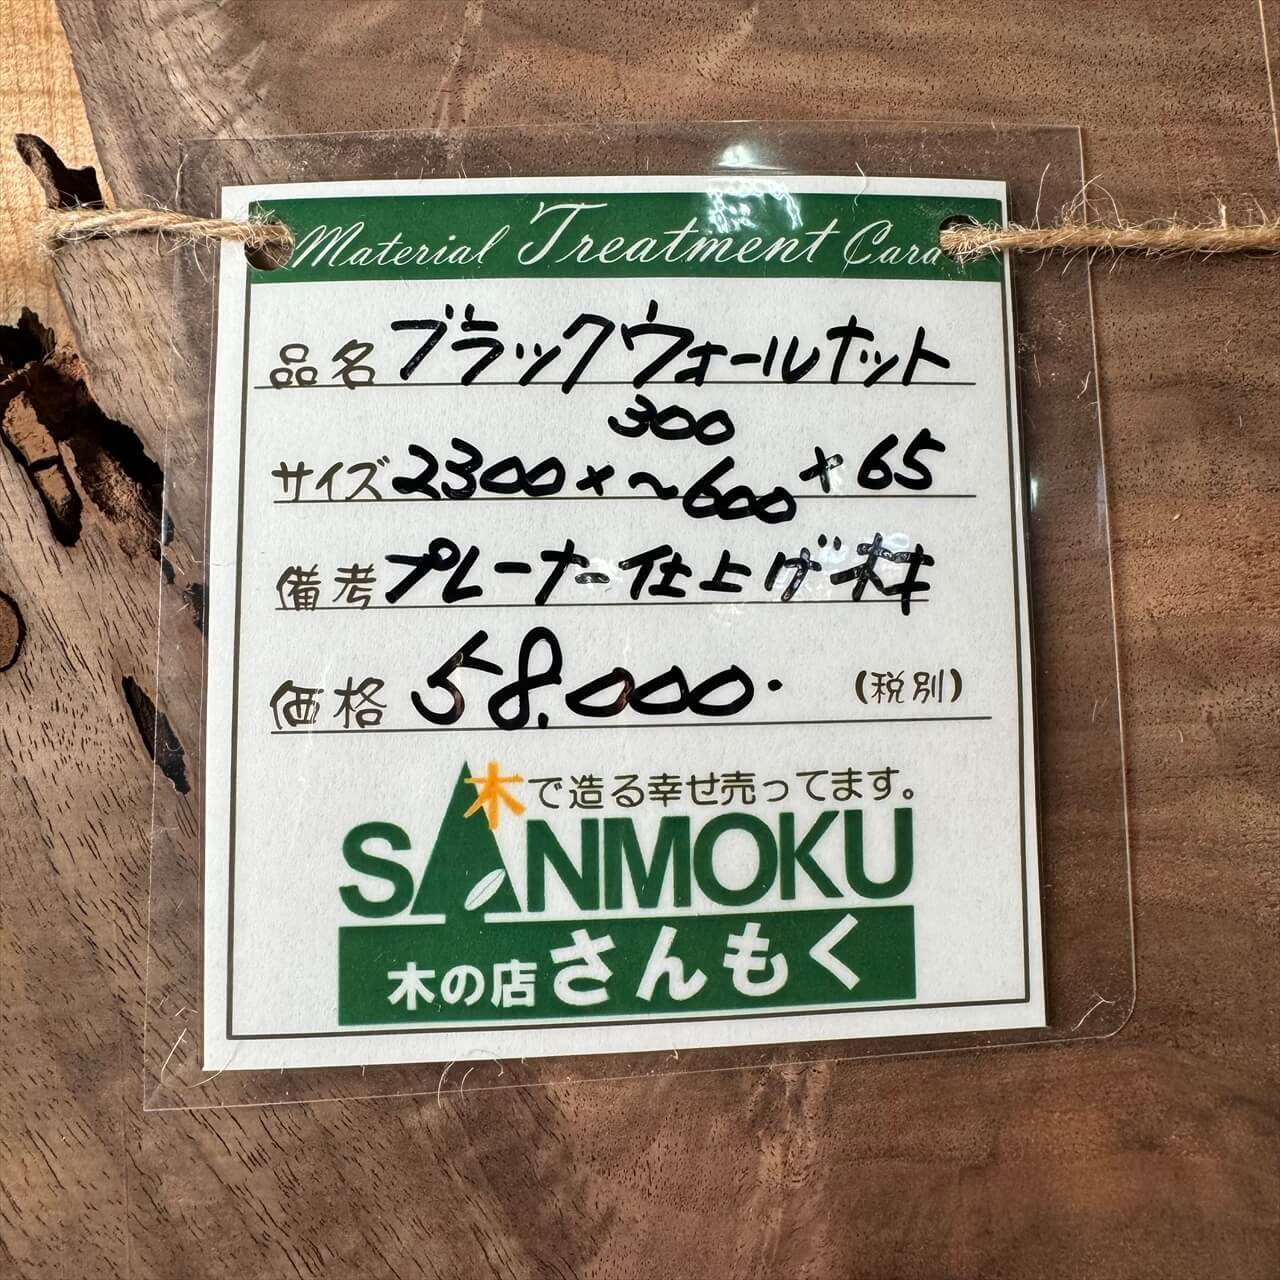 Material Treatment Card
品名 ブラックウォールナット
サイズ 2300×300～600×65
備考 プレーナー仕上げ材
価格 58.000.- (税別)
木で造る幸せ売ってます。
SANMOKU
木の店 さんもく